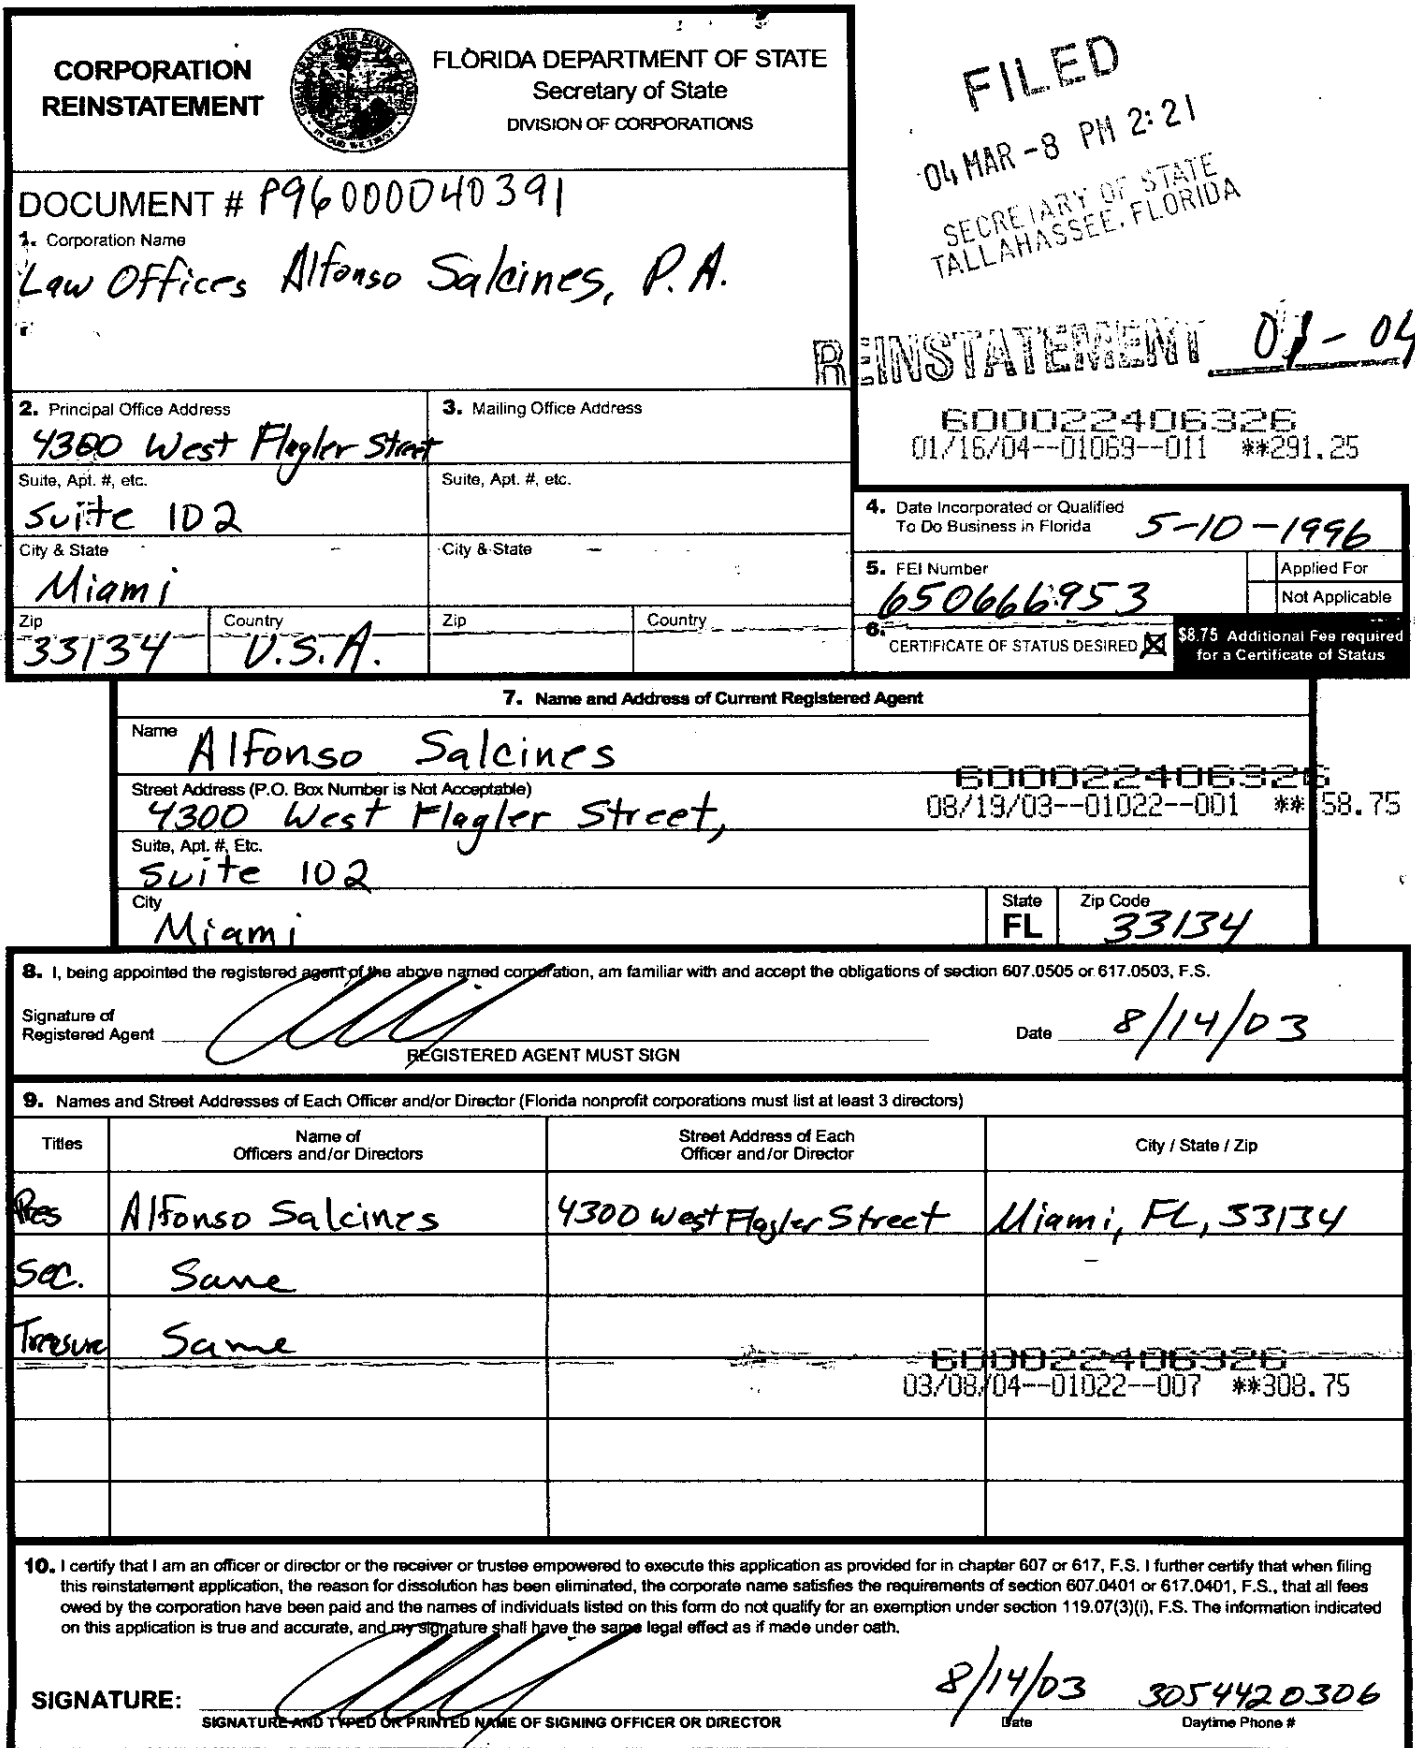 CORPORATION
REINSTATEMENT
FLORIDA DEPARTMENT OF STATE
Secretary of State
DIVISION OF CORPORATIONS
FILED
04 MAR -8 PM 2:21
SECRETARY OF STATE
TALLAHASSEE, FLORIDA
DOCUMENT # P96000040391
1. Corporation Name
Law Offices Alfonso Salcines, P.A.
REINSTATEMENT 01-04
600022406326
01/16/04--01069--011 **291.25
2. Principal Office Address
4300 West Flagler Street
Suite, Apt. #, etc.
Suite 102
City & State
Miami
Zip
33134
Country
U.S.A.
3. Mailing Office Address
Suite, Apt. #, etc.
City & State
Zip
Country
4. Date Incorporated or Qualified
To Do Business in Florida
5-10-1996
5. FEI Number
650666953
Applied For
Not Applicable
6. CERTIFICATE OF STATUS DESIRED
$8.75 Additional Fee required
for a Certificate of Status
7. Name and Address of Current Registered Agent
Name
Alfonso Salcines
600022406326
08/19/03--01022--001 **158.75
Street Address (P.O. Box Number is Not Acceptable)
4300 West Flagler Street,
Suite, Apt. #, Etc.
Suite 102
City
Miami
State
FL
Zip Code
33134
8. I, being appointed the registered agent of the above named corporation, am familiar with and accept the obligations of section 607.0505 or 617.0503, F.S.
Signature of
Registered Agent
Date 8/14/03
REGISTERED AGENT MUST SIGN
9. Names and Street Addresses of Each Officer and/or Director (Florida nonprofit corporations must list at least 3 directors)
Titles
Name of
Officers and/or Directors
Street Address of Each
Officer and/or Director
City / State / Zip
Pres Alfonso Salcines 4300 West Flagler Street Miami, FL, 33134
Sec. Same
Treasure Same
600022406326
03/08/04--01022--007 **308.75
10. I certify that I am an officer or director or the receiver or trustee empowered to execute this application as provided for in chapter 607 or 617, F.S. I further certify that when filing
this reinstatement application, the reason for dissolution has been eliminated, the corporate name satisfies the requirements of section 607.0401 or 617.0401, F.S., that all fees
owed by the corporation have been paid and the names of individuals listed on this form do not qualify for an exemption under section 119.07(3)(i), F.S. The information indicated
on this application is true and accurate, and my signature shall have the same legal effect as if made under oath.
SIGNATURE:
8/14/03 3054420306
SIGNATURE AND TYPED OR PRINTED NAME OF SIGNING OFFICER OR DIRECTOR
Date
Daytime Phone #